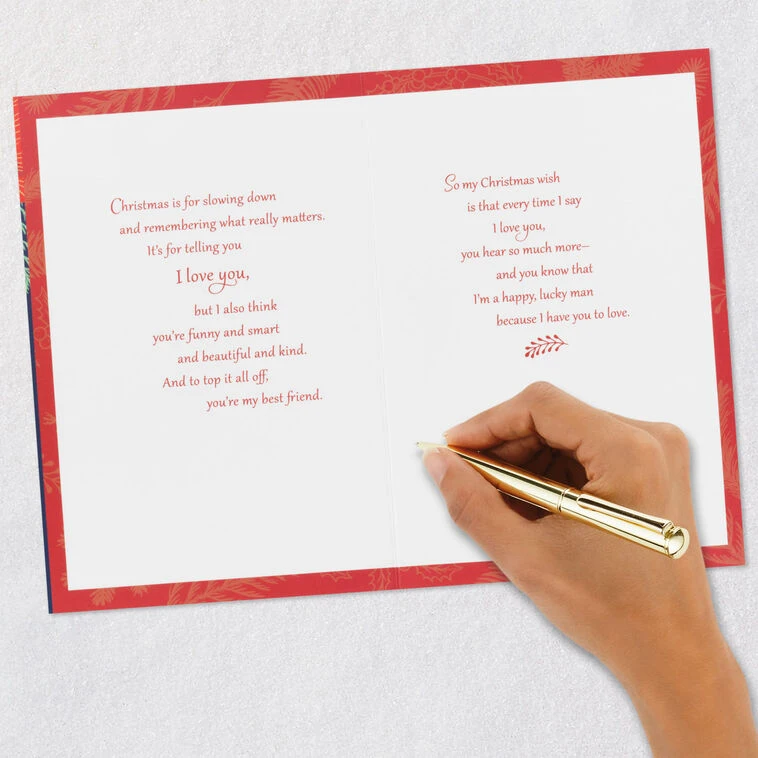 Christmas is for slowing down
and remembering what really matters.
It's for telling you
I love you,
but I also think
you're funny and smart
and beautiful and kind.
And to top it all off,
you're my best friend.
So my Christmas wish
is that every time I say
I love you,
you hear so much more—
and you know that
I'm a happy, lucky man
because I have you to love.